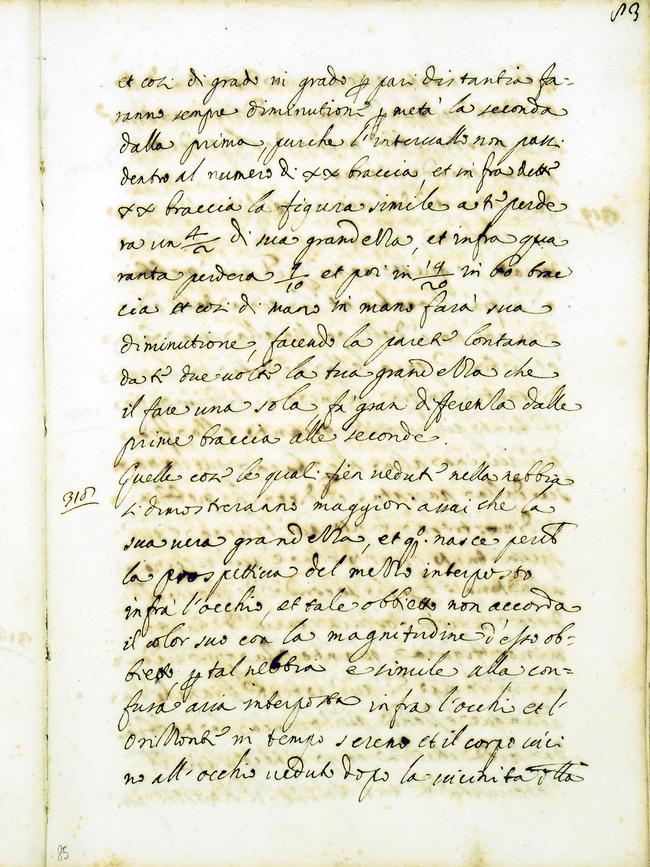 83
et cosi di grado in grado ꝑ pari distantia fa-
ranno sempre diminutione ꝑ metà la seconda
dalla prima, purche l'intervallo non passi
dentro al numero di xx braccia, et infra dette
xx braccia la figura simile a te perde
ra un 4/2 di sua grandezza, et infra qua
ranta perdera 9/10 et poi in 19/20 in 60 brac
cia et cosi di mano in mano farà sua
diminutione, facendo la parete lontana
da te due volte la tua grandezza che
il fare una sola fa gran differenza dalle
prime braccia alle seconde.
318
Quelle cose le quali fien vedute nella nebbia
si dimostreranno maggiori assai che la
sua vera grandezza, et q°. nasce perche
la prospettiva del mezzo interposto
infra l'occhio, et tale obbietto non accorda
il color suo con la magnitudine d'esso ob-
bietto, ꝑ tal nebbia e simile alla con-
fusa aria interposta infra l'occhi et l'
orizzonte in tempo sereno et il corpo vici
no all'occhio veduto dopo la vicinità della
85